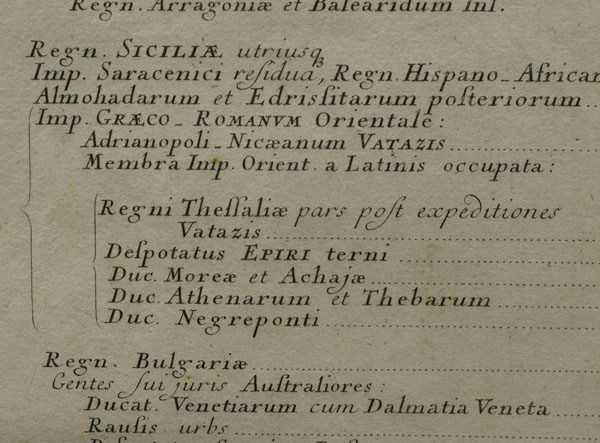 Regn. Arragoniæ et Balearidum Inſ.
Regn. SICILIÆ utriusq3
Imp. Saracenici reſidua, Regn. Hispano-African
Almohadarum et Edrisſitarum poſteriorum
Imp. GRÆCO-ROMANVM Orientale:
Adrianopoli-Nicæanum VATAZIS
Membra Imp. Orient. a Latinis occupata:
Regni Theſſaliæ pars poſt expeditiones
Vatazis
Deſpotatus EPIRI terni
Duc. Moreæ et Achajæ
Duc. Athenarum et Thebarum
Duc. Negreponti
Regn. Bulgariæ
Gentes ſui juris Auſtraliores:
Ducat. Venetiarum cum Dalmatia Veneta
Rauſis urbs